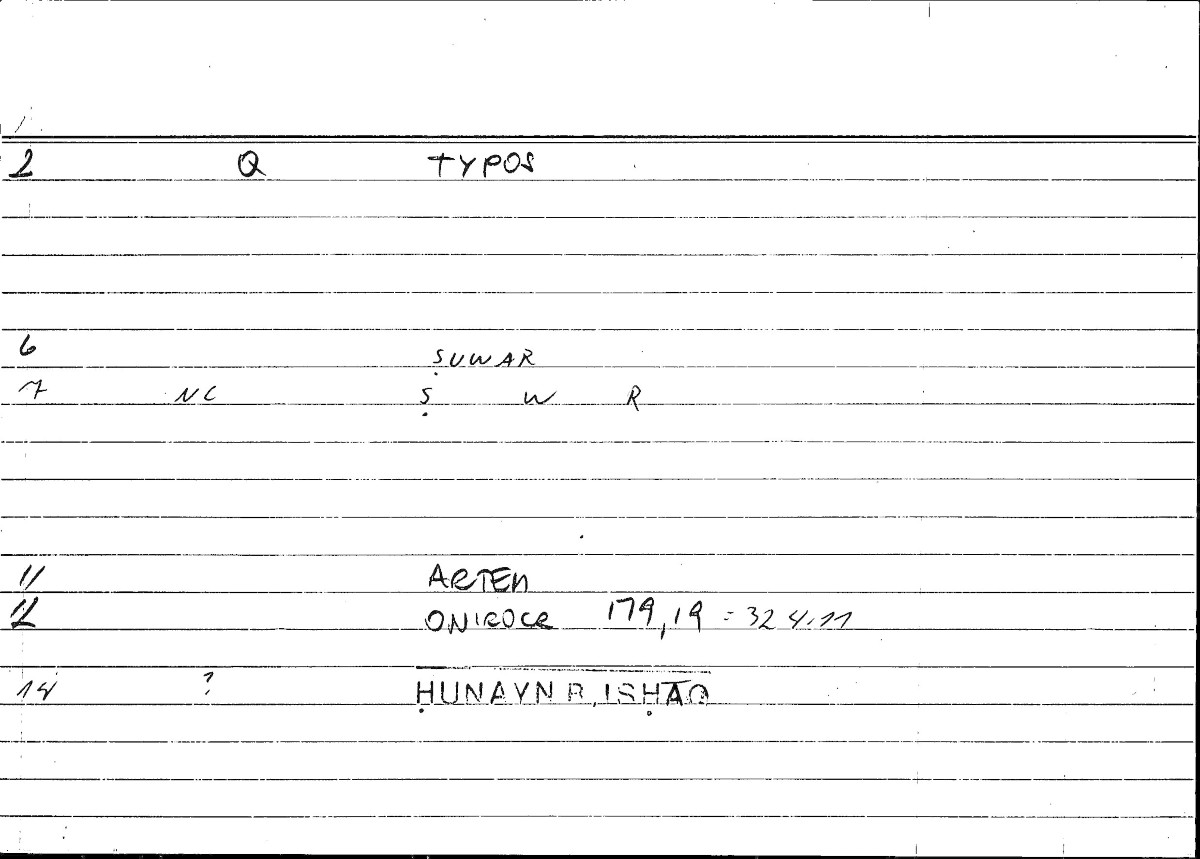 2 Q TYPOS
6 ṢUWAR
7 NC Ṣ W R
11 ARTEM
12 ONIROCR 179,19 = 324.11
14 ? ḤUNAYN B. ISḤĀQ